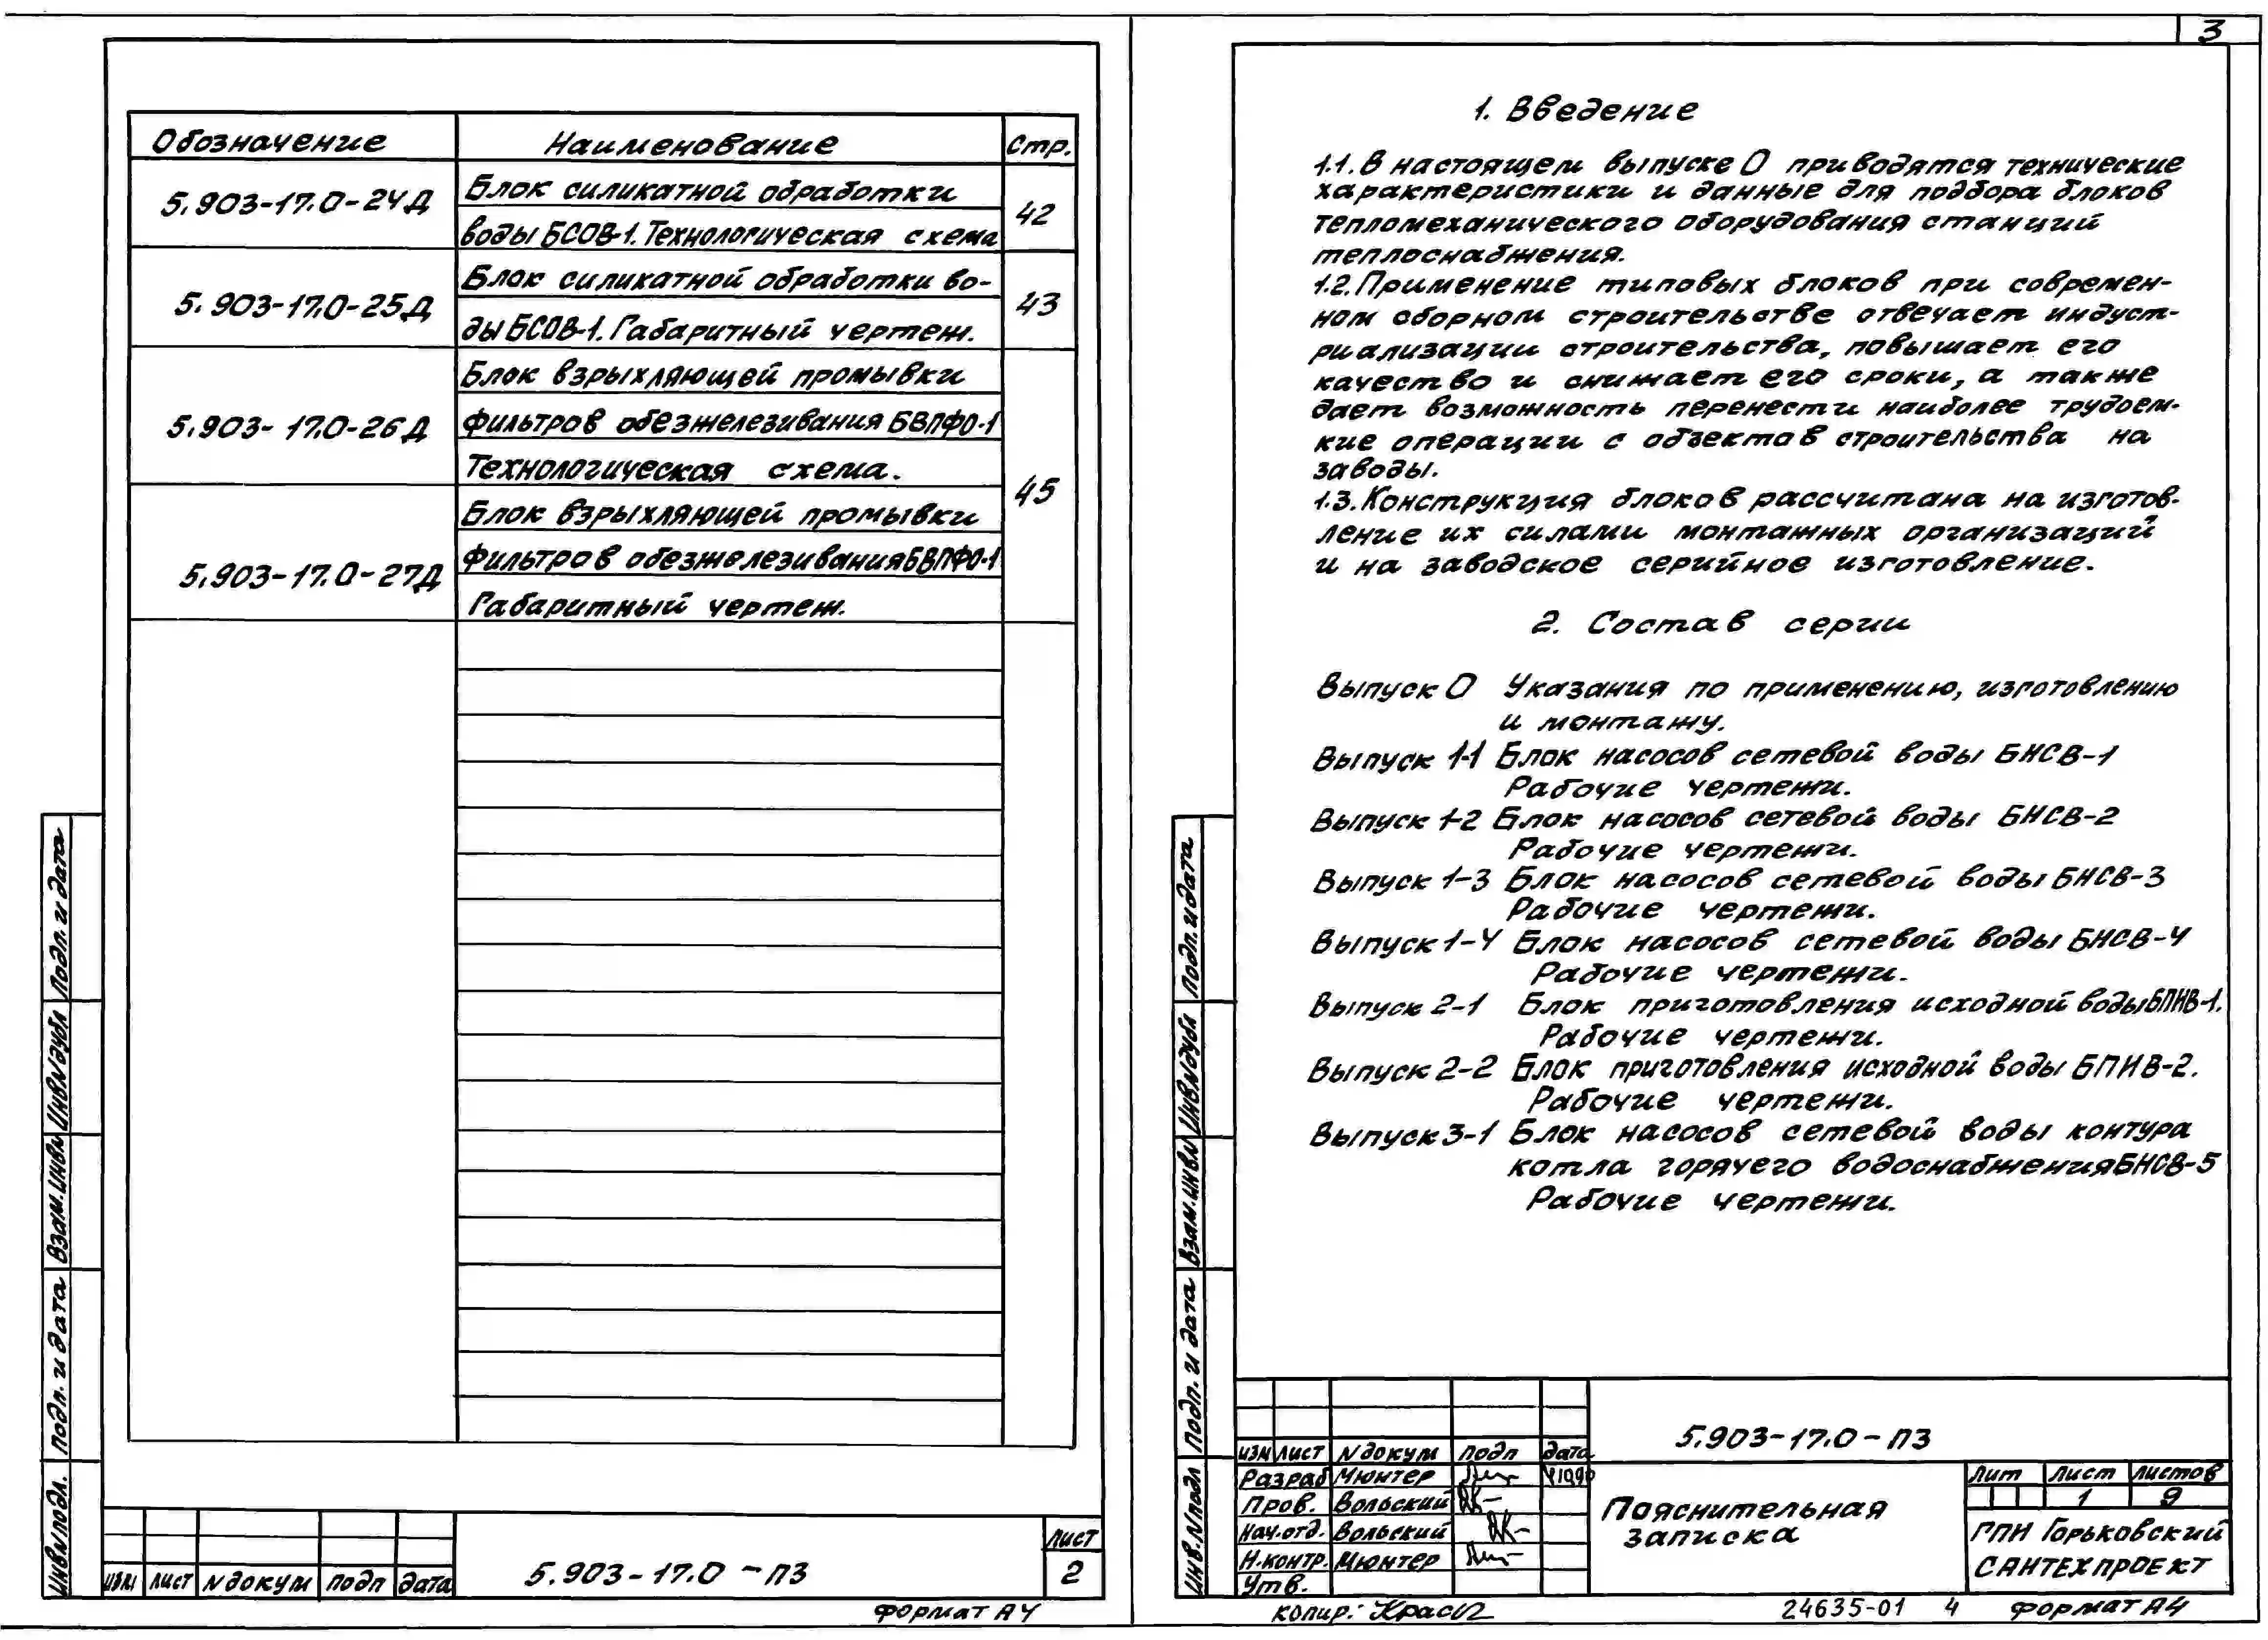 Обозначение Наименование Стр.
5.903-17.0-24Д Блок силикатной обработки
воды БСОВ-1. Технологическая схема 42
5.903-17.0-25Д Блок силикатной обработки во-
ды БСОВ-1. Габаритный чертеж. 43
5.903-17.0-26Д Блок взрыхляющей промывки
фильтров обезжелезивания БВПФО-1
Технологическая схема.
45
5.903-17.0-27Д Блок взрыхляющей промывки
фильтров обезжелезивания БВПФО-1
Габаритный чертеж.
Подп. и дата
Инв N дубл
Взам. инв N
Подп. и дата
Инв N подл.
изм лист N докум подп дата
5.903-17.0-ПЗ
лист
2
формат А4
3
1. Введение
1.1. В настоящем выпуске 0 приводятся технические
характеристики и данные для подбора блоков
тепломеханического оборудования станций
теплоснабжения.
1.2. Применение типовых блоков при современ-
ном сборном строительстве отвечает индуст-
риализации строительства, повышает его
качество и снижает его сроки, а также
дает возможность перенести наиболее трудоем-
кие операции с объектов строительства на
заводы.
1.3. Конструкция блоков рассчитана на изготов-
ление их силами монтажных организаций
и на заводское серийное изготовление.
2. Состав серии
Выпуск 0 Указания по применению, изготовлению
и монтажу.
Выпуск 1-1 Блок насосов сетевой воды БНСВ-1
Рабочие чертежи.
Выпуск 1-2 Блок насосов сетевой воды БНСВ-2
Рабочие чертежи.
Выпуск 1-3 Блок насосов сетевой воды БНСВ-3
Рабочие чертежи.
Выпуск 1-4 Блок насосов сетевой воды БНСВ-4
Рабочие чертежи.
Выпуск 2-1 Блок приготовления исходной воды БПИВ-1.
Рабочие чертежи.
Выпуск 2-2 Блок приготовления исходной воды БПИВ-2.
Рабочие чертежи.
Выпуск 3-1 Блок насосов сетевой воды контура
котла горячего водоснабжения БНСВ-5
Рабочие чертежи.
Подп. и дата
Инв N дубл
Взам. инв N
Подп. и дата
Инв. N подл
изм лист N докум подп дата
Разраб Мюнтер
Пров. Вольский
Нач. отд. Вольский
Н. контр. Мюнтер
Утв.
5.903-17.0-ПЗ
Пояснительная
записка
Лит Лист Листов
1 9
ГПИ Горьковский
САНТЕХПРОЕКТ
копир.: 24635-01 4 формат А4